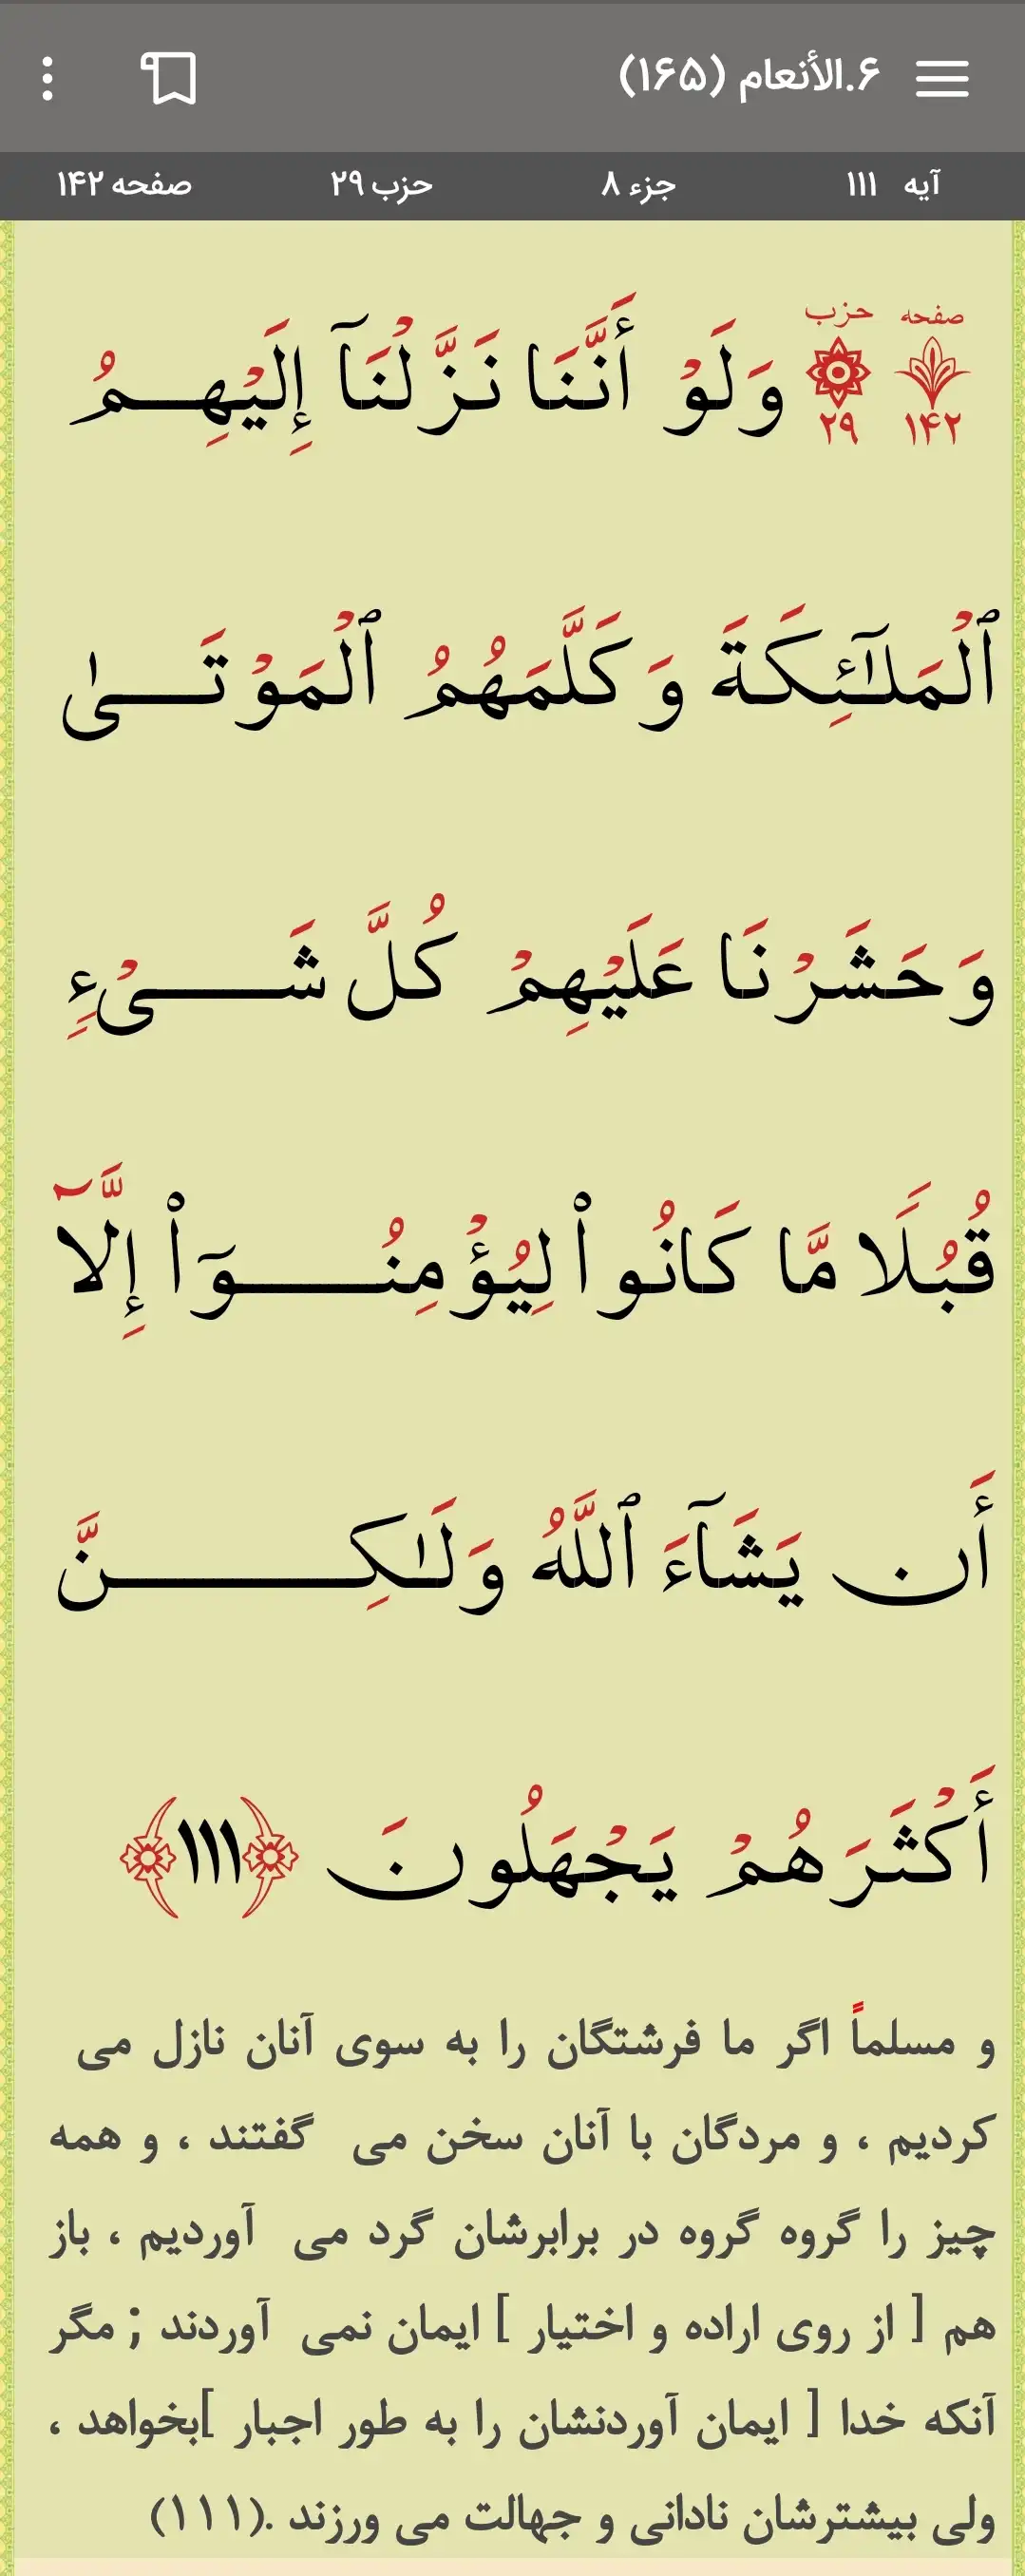 ۶.الأنعام (۱۶۵)
آیه ۱۱۱ جزء ۸ حزب ۲۹ صفحه ۱۴۲
صفحه حزب
۱۴۲ ۲۹
وَلَوْ أَنَّنَا نَزَّلْنَآ إِلَيْهِمُ
ٱلْمَلَـٰٓئِكَةَ وَكَلَّمَهُمُ ٱلْمَوْتَىٰ
وَحَشَرْنَا عَلَيْهِمْ كُلَّ شَىْءٍ
قُبُلًا مَّا كَانُوا۟ لِيُؤْمِنُوٓا۟ إِلَّآ
أَن يَشَآءَ ٱللَّهُ وَلَـٰكِنَّ
أَكْثَرَهُمْ يَجْهَلُونَ ﴿۱۱۱﴾
و مسلماً اگر ما فرشتگان را به سوی آنان نازل می
کردیم ، و مردگان با آنان سخن می گفتند ، و همه
چیز را گروه گروه در برابرشان گرد می آوردیم ، باز
هم [ از روی اراده و اختیار ] ایمان نمی آوردند ; مگر
آنکه خدا [ ایمان آوردنشان را به طور اجبار ]بخواهد ،
ولی بیشترشان نادانی و جهالت می ورزند .(۱۱۱)